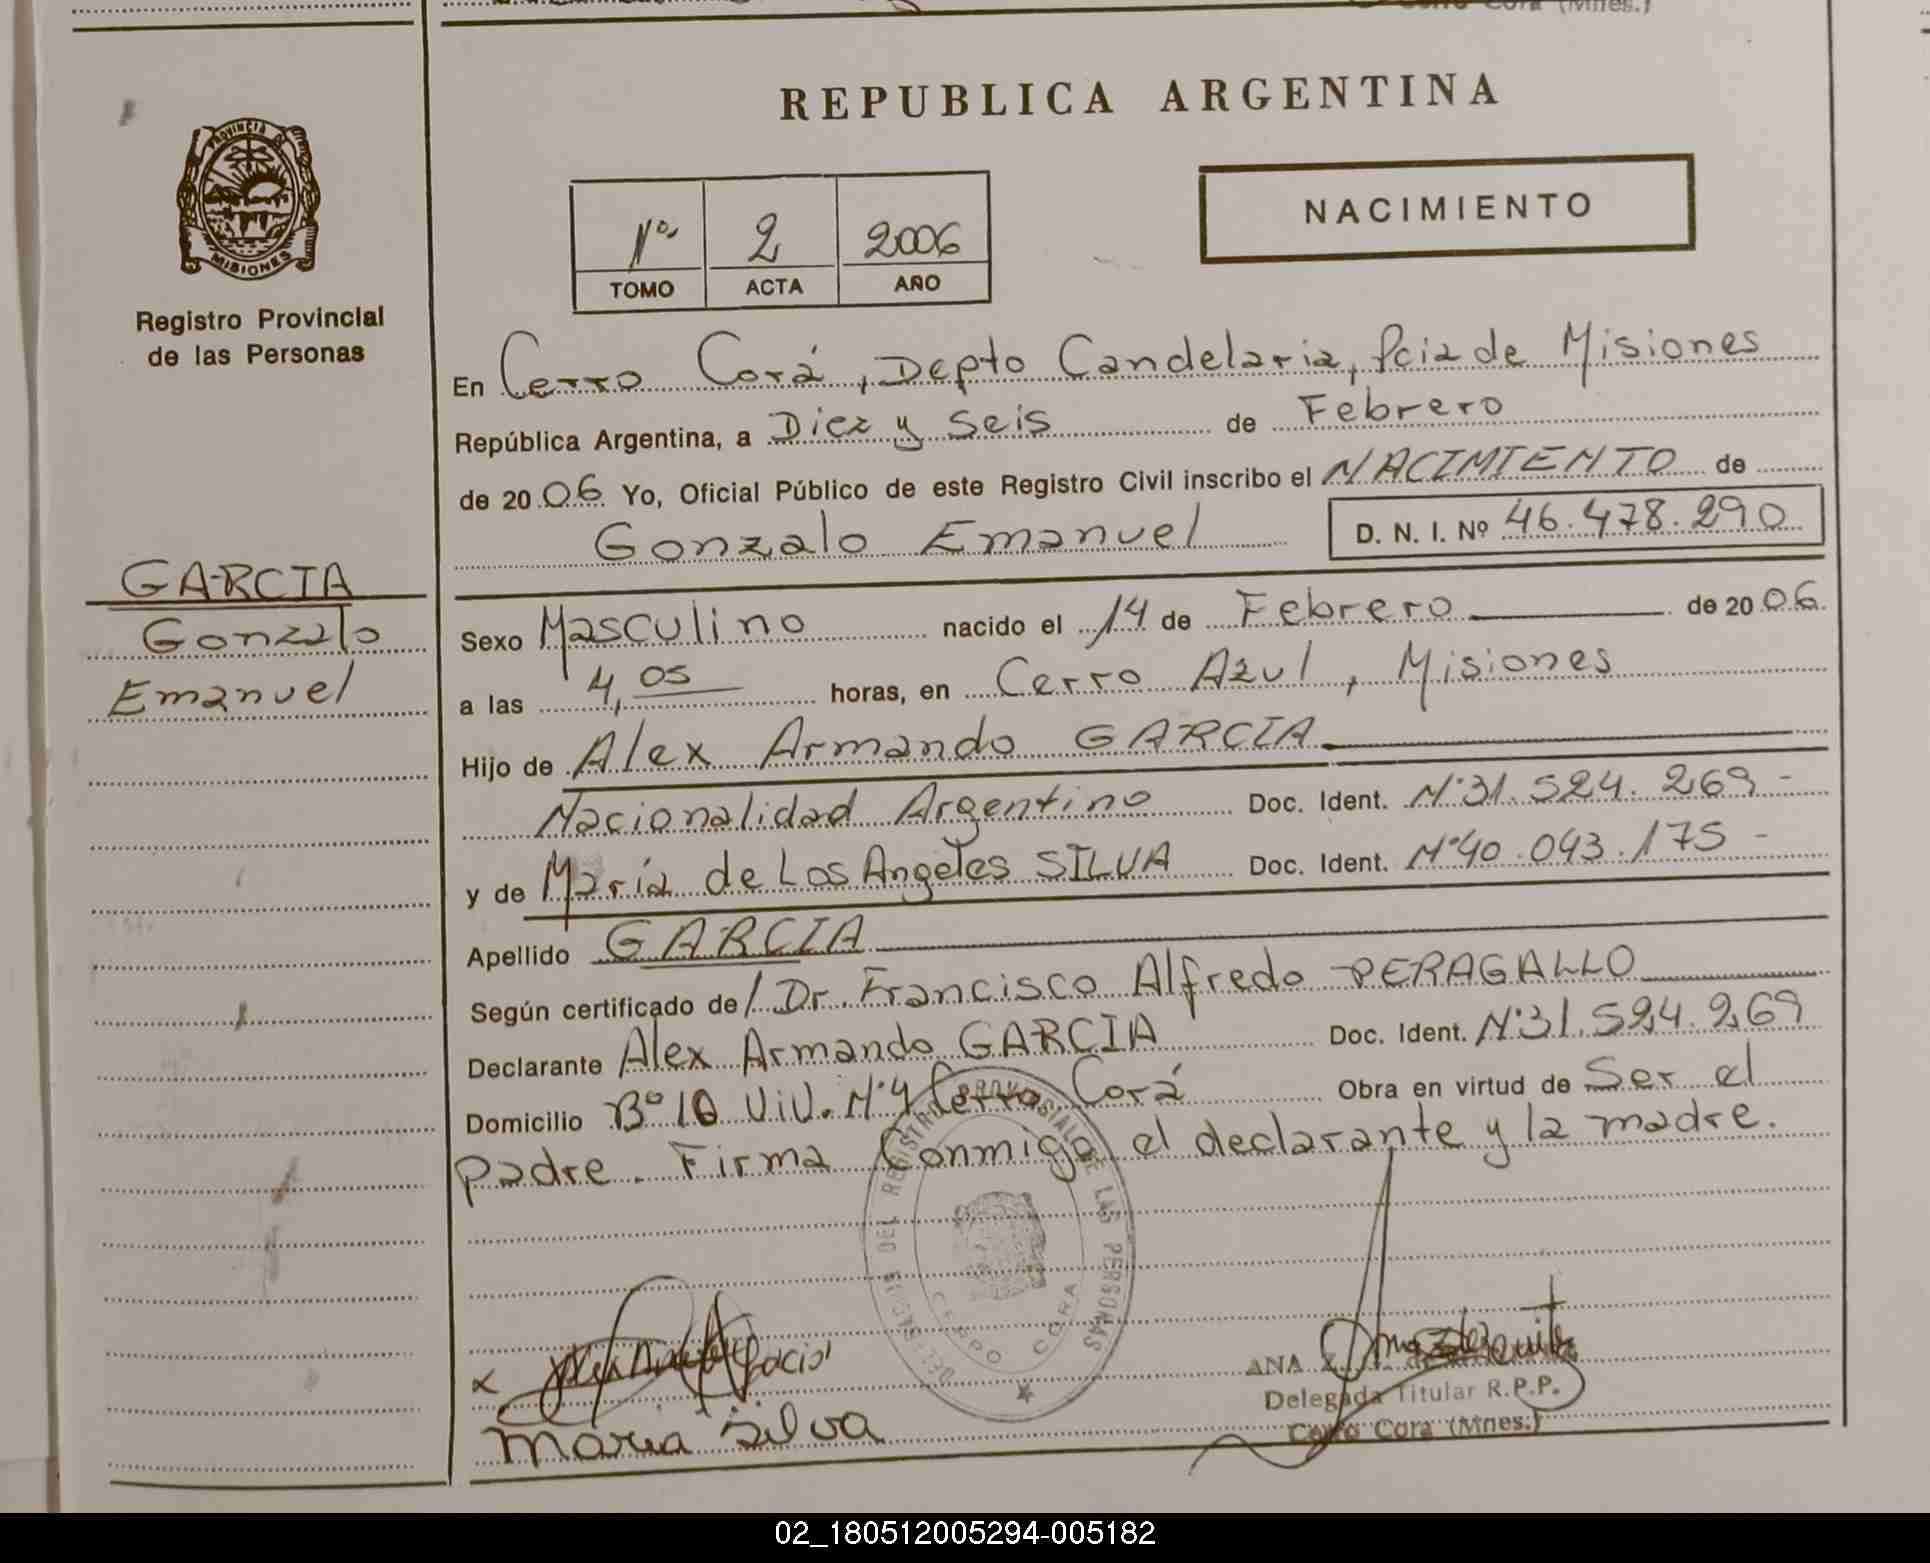 Cerro Cora (Mnes.)
REPUBLICA ARGENTINA
PROVINCIA DE
MISIONES
Registro Provincial
de las Personas
1º 2 2006
TOMO ACTA AÑO
NACIMIENTO
En Cerro Corá, Depto Candelaria, Pcia de Misiones
República Argentina, a Diez y Seis de Febrero
de 20 06 Yo, Oficial Público de este Registro Civil inscribo el NACIMIENTO de
Gonzalo Emanuel D. N. I. Nº 46.478.290
GARCIA
Gonzalo
Emanuel
Sexo Masculino nacido el 14 de Febrero de 20 06
a las 4,05 horas, en Cerro Azul, Misiones
Hijo de Alex Armando GARCIA
Nacionalidad Argentino Doc. Ident. Nº 31.524.269 -
y de María de Los Angeles SILVA Doc. Ident. Nº 40.043.175 -
Apellido GARCIA
Según certificado de / Dr. Francisco Alfredo PERAGALLO
Declarante Alex Armando GARCIA Doc. Ident. Nº 31.524.269
Domicilio Bº 10 Viv. Nº 4 Cerro Corá Obra en virtud de Ser el
padre. Firma Conmigo el declarante y la madre.
DEL REGISTRO PROVINCIAL DE LAS PERSONAS
CERRO CORA
x
Maria Silva
ANA
Delegada Titular R.P.P.
Cerro Cora (Mnes.)
02_180512005294-005182